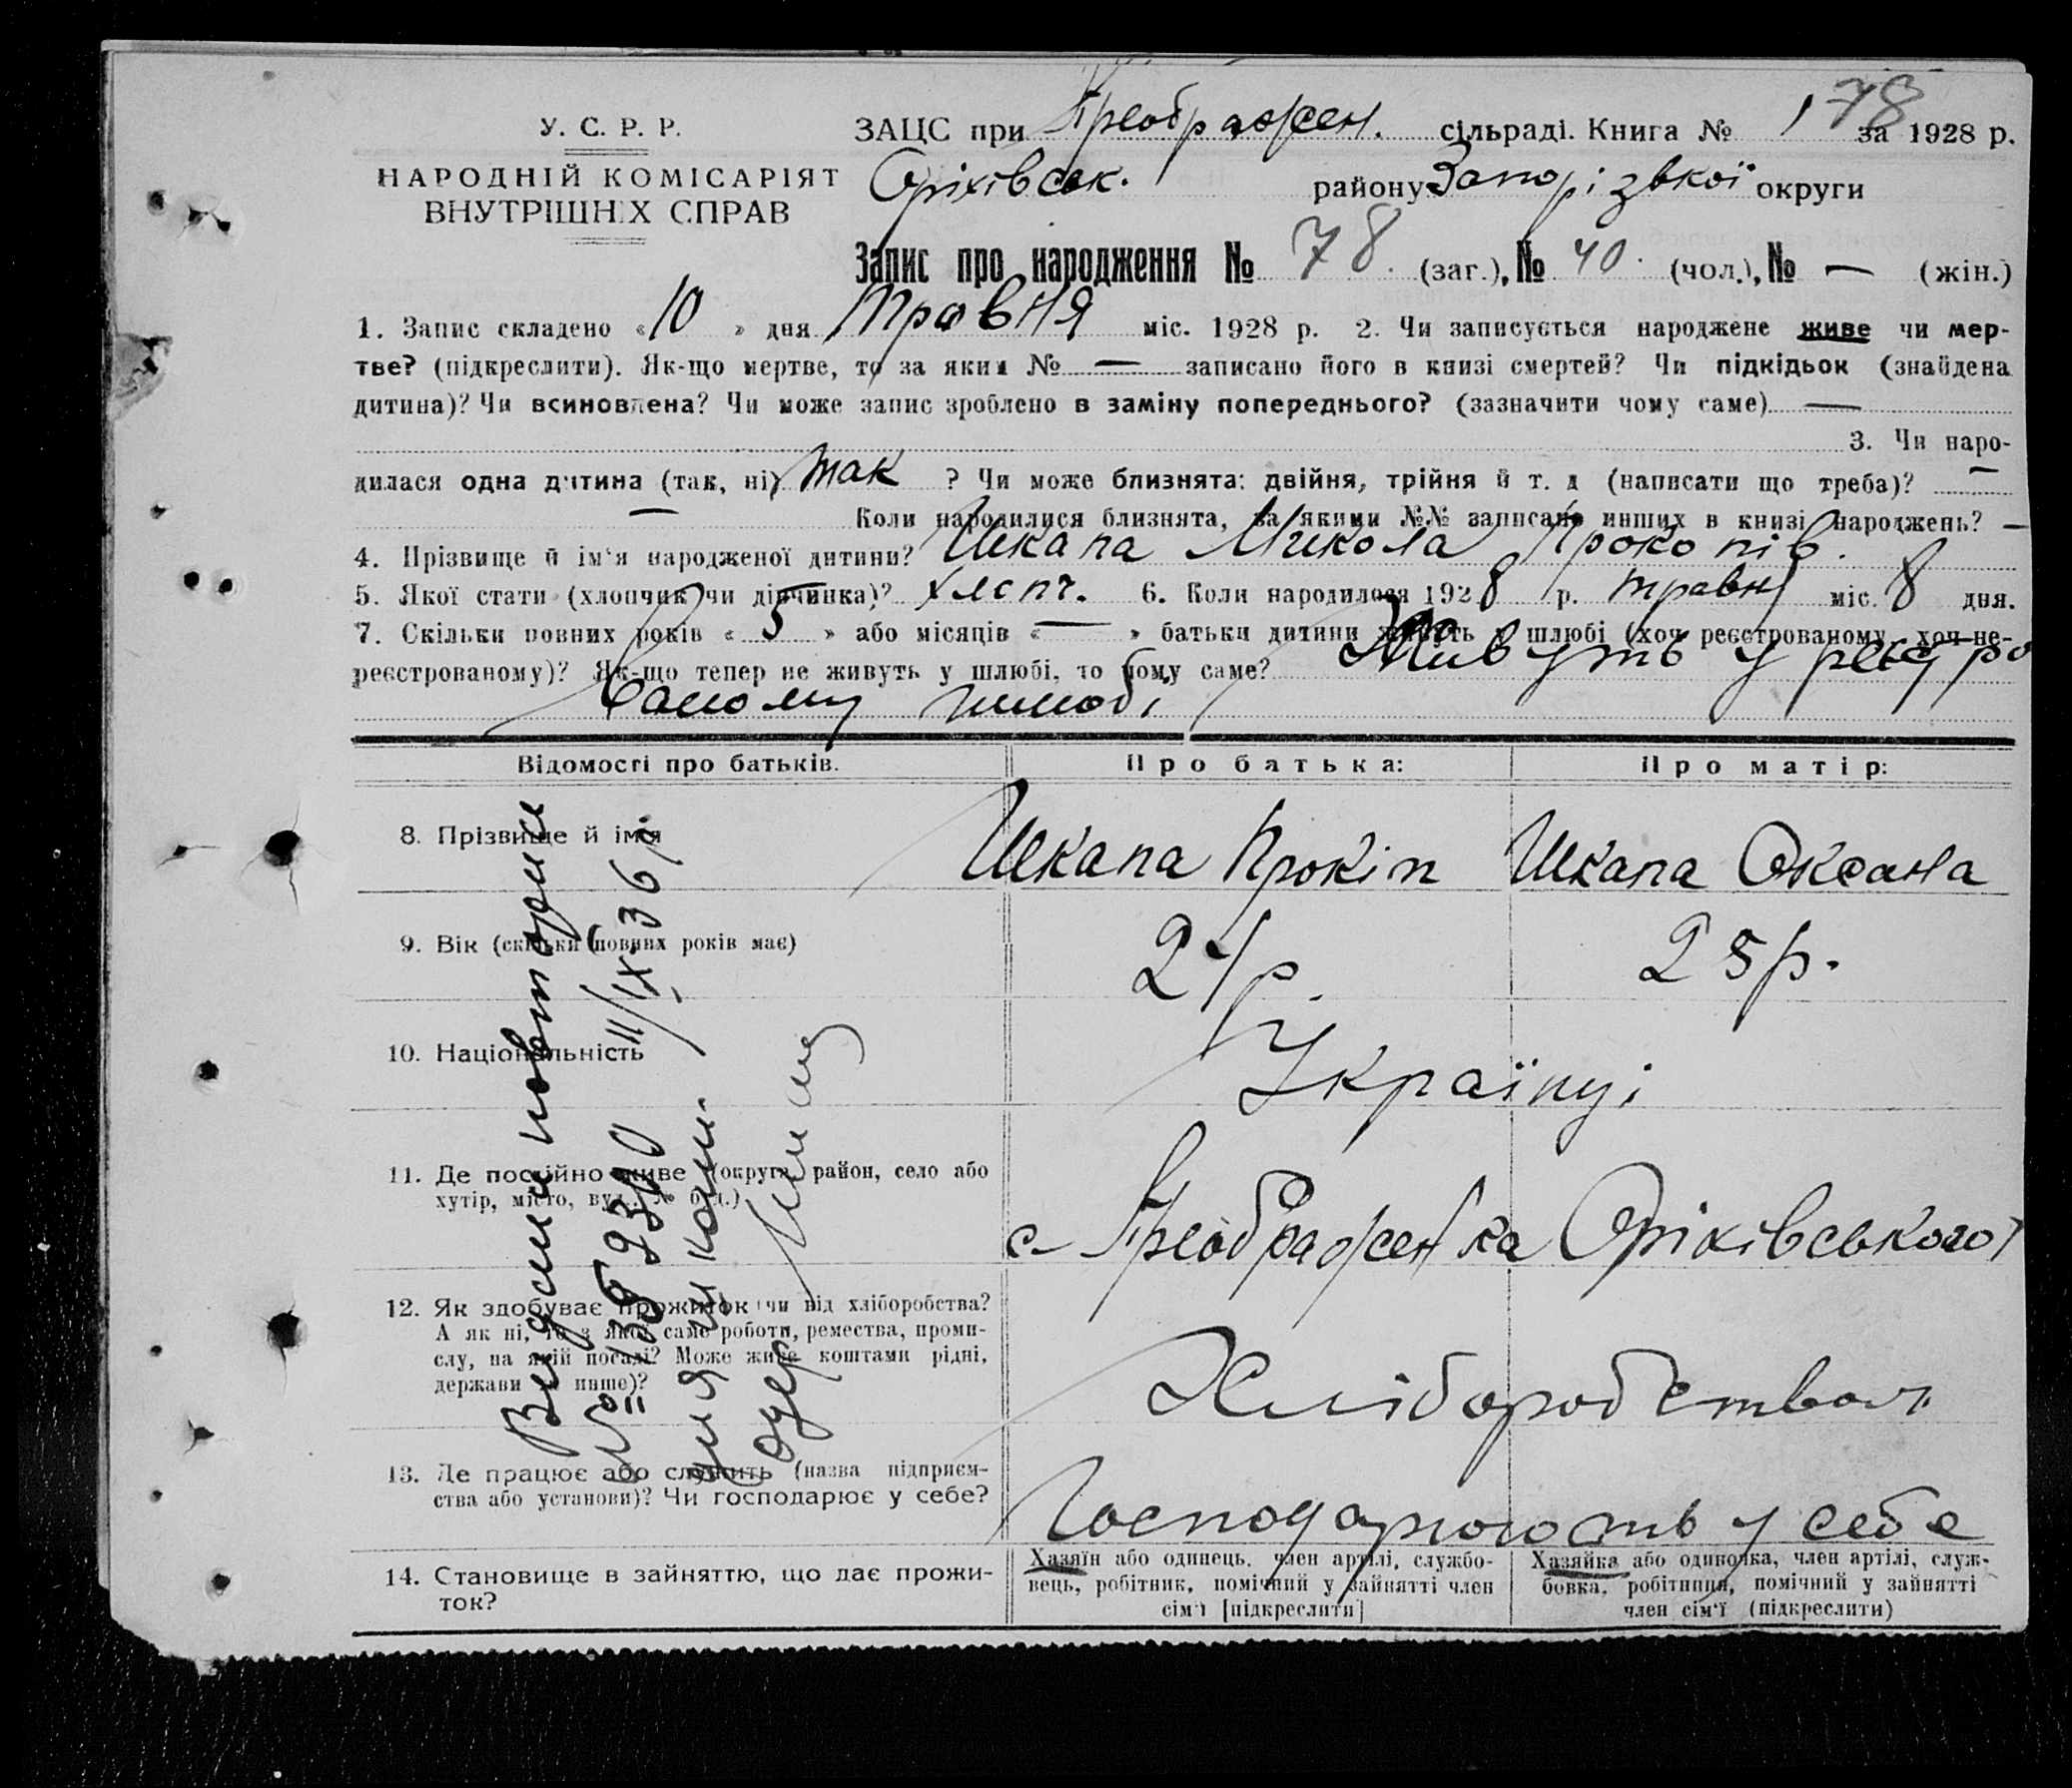 У. С. Р. Р.
НАРОДНІЙ КОМІСАРІЯТ
ВНУТРІШНІХ СПРАВ
ЗАЦС при Преображен. сільраді. Книга № 1 за 1928 р.
78
Оріхівськ. району Запорізької округи
Запис про народження № 78. (заг.), № 40. (чол.), № — (жін.)
1. Запис складено «10» дня травня міс. 1928 р. 2. Чи записується народжене живе чи мер-
тве? (підкреслити). Як-що мертве, то за яким № — записано його в книзі смертей? Чи підкідьок (знайдена
дитина)? Чи всиновлена? Чи може запис зроблено в заміну попереднього? (зазначити чому саме) —
3. Чи наро-
дилася одна дитина (так, ні) так ? Чи може близнята: двійня, трійня й т. д (написати що треба)? —
— Коли народилися близнята, за якими №№ записано инших в книзі народжень? —
4. Прізвище й ім'я народженої дитини? Шкапа Микола Прокопів.
5. Якої стати (хлопчик чи дівчинка)? хлопч. 6. Коли народилося 1928 р. травня міс. 8 дня.
7. Скільки повних років «5» або місяців «—» батьки дитини живуть у шлюбі (хоч реєстрованому, хоч не-
реєстрованому)? Як-що тепер не живуть у шлюбі, то чому саме? Живуть у реєстро
ваному шлюбі
Відомості про батьків. Про батька: Про матір:
8. Прізвище й ім'я Шкапа Прокіп Шкапа Оксана
9. Вік (скільки повних років має) 24р. 25р.
10. Національність Українці
11. Де постійно живе (округа, район, село або
хутір, місто, вул., № буд.)
с. Преображенка Оріхівського
12. Як здобуває прожиток чи від хліборобства?
А як ні, то з якої саме роботи, ремества, проми-
слу, на якій посаді? Може живе коштами рідні,
держави чи инше)?
Хліборобством
13. Де працює або служить (назва підприєм-
ства або установи)? Чи господарює у себе?
Господарюють у себе
14. Становище в зайняттю, що дає прожи-
ток?
Хазяїн або одинець, член артілі, службо-
вець, робітник, помічний у зайнятті член
сім'ї [підкреслити]
Хазяйка або одиночка, член артілі, служ-
бовка, робітниця, помічний у зайнятті
член сім'ї (підкреслити)
Видана повторне
11/IX-36 р.